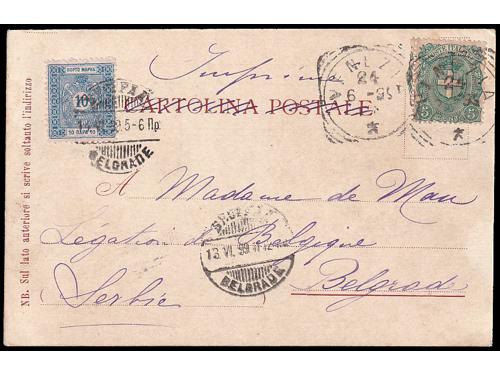 Imprimé
ПОРТО МАРКА
10
10 ПАРА 10
5-6 Пр.
BELGRADE
CARTOLINA POSTALE
24
6
5
A Madame de Man
Légation de Belgique
Belgrade
Serbie
13 VI 99
BELGRADE
NB. Sul lato anteriore si scrive soltanto l'indirizzo